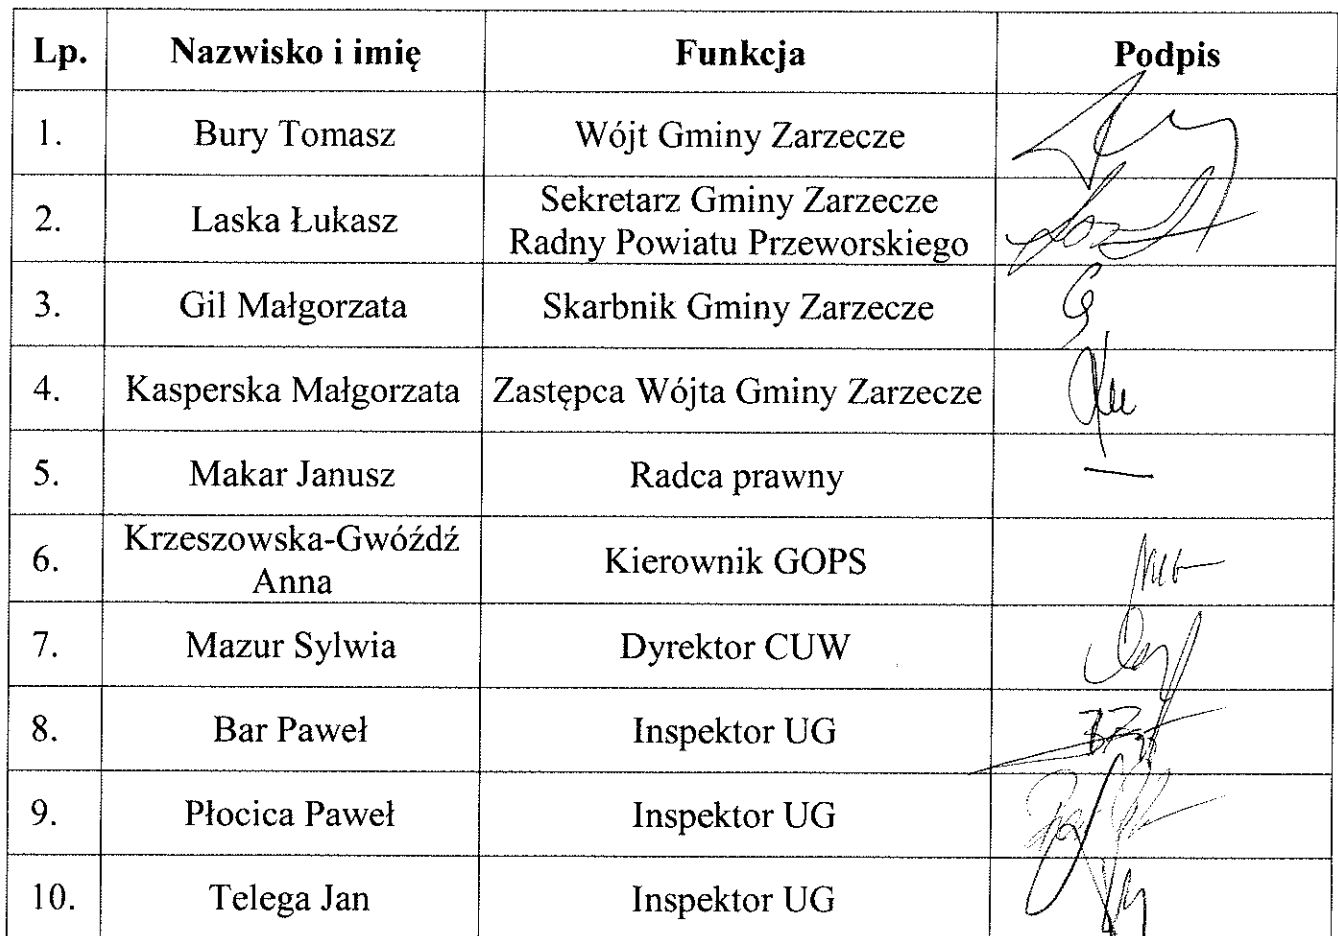 Lp. Nazwisko i imię Funkcja Podpis
1. Bury Tomasz Wójt Gminy Zarzecze
2. Laska Łukasz Sekretarz Gminy Zarzecze
Radny Powiatu Przeworskiego
3. Gil Małgorzata Skarbnik Gminy Zarzecze
4. Kasperska Małgorzata Zastępca Wójta Gminy Zarzecze
5. Makar Janusz Radca prawny —
6. Krzeszowska-Gwóźdź
Anna Kierownik GOPS
7. Mazur Sylwia Dyrektor CUW
8. Bar Paweł Inspektor UG
9. Płocica Paweł Inspektor UG
10. Telega Jan Inspektor UG